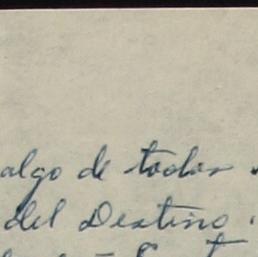 algo de todos
del Destino